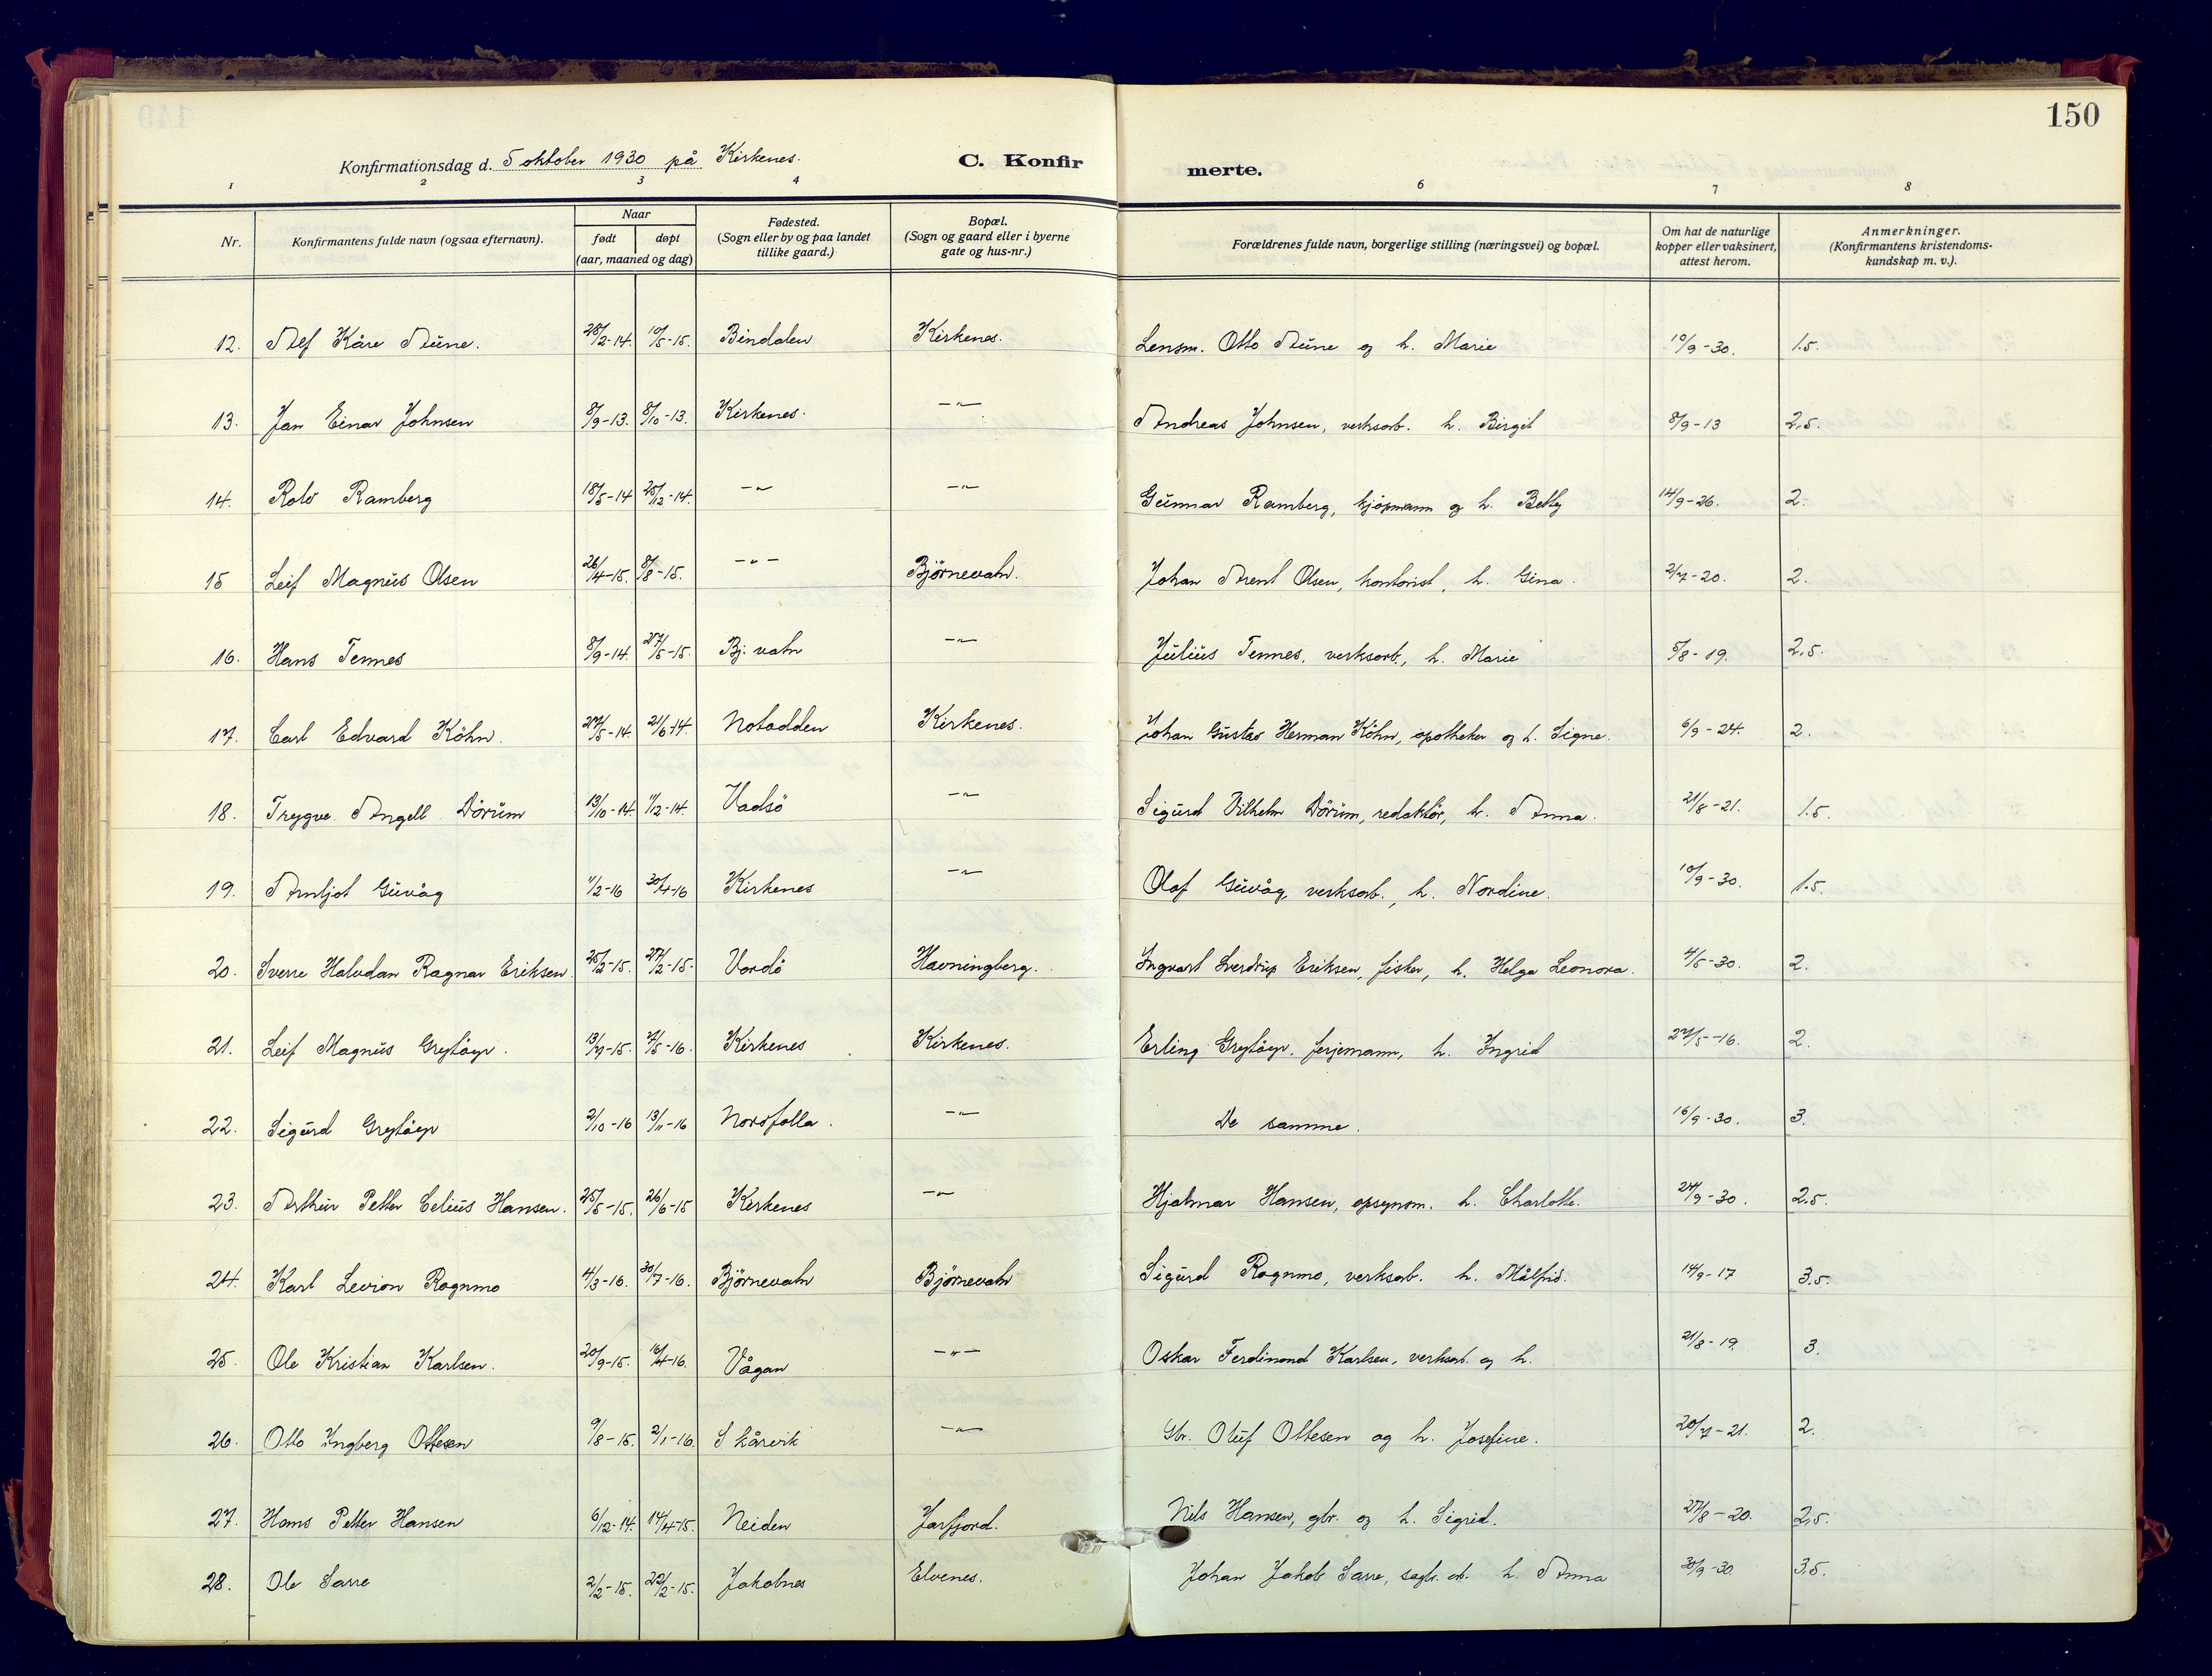 150
Konfirmationsdag d. 5 oktober 1930 på Kirkenes.
C. Konfirmerte.
1 2 3 4 6 7 8
Nr.
Konfirmantens fulde navn (ogsaa efternavn).
Naar
født døpt
(aar, maaned og dag)
Fødested.
(Sogn eller by og paa landet
tillike gaard.)
Bopæl.
(Sogn og gaard eller i byerne
gate og hus-nr.)
Forældrenes fulde navn, borgerlige stilling (næringsvei) og bopæl.
Om hat de naturlige
kopper eller vaksinert,
attest herom.
Anmerkninger.
(Konfirmantens kristendoms-
kundskap m. v.).
12. Alf Kåre Aune. 28/2-14. 10/5-15. Bindalen Kirkenes. Lensm. Otto Aune og h. Marie 10/9-30. 1.5.
13. Jan Einar Johnsen 8/9-13. 8/10-13. Kirkenes. -"- Andreas Johnsen, verksarb. h. Birgit 8/9-13 2,5.
14. Rolv Ramberg 18/5-14 25/12-14. -"- -"- Gunnar Ramberg, kjöpmann og h. Betty 14/9-26. 2.
15 Leif Magnus Olsen 26/4-15. 8/8-15. -"- Björnevatn. Johan Arent Olsen, kontorist, h. Gina. 2/7-20. 2.
16. Hans Tennes 8/9-14. 27/5-15. Bj. vatn -"- Julius Tennes, verksarb., h. Marie 5/8-19. 2,5.
17. Carl Edvard Köhn. 27/5-14. 21/6-14. Notodden Kirkenes. Johan Gustav Herman Köhn, apotheker og h. Signe. 6/9-24. 2.
18. Trygve Angell Dörum 13/10-14. 11/2-14. Vadsö -"- Sigurd Vilhelm Dörum, redaktör, h. Anna. 21/8-21. 1.5.
19. Arnljot Guvåg 11/2-16 30/4-16 Kirkenes -"- Olaf Guvåg, verksarb., h. Nordine. 10/9-30. 1.5.
20. Sverre Halvdan Ragnar Eriksen 25/2-15. 27/2-15. Vardö Havningberg. Ingvart Sverdrup Eriksen, fisker, h. Helga Leonora. 4/5-30. 2.
21. Leif Magnus Grytöyr. 13/7-15. 7/5-16. Kirkenes Kirkenes. Erling Grytöyr, ferjemann, h. Ingrid 27/5-16. 2.
22. Sigurd Grytöyr 2/10-16 13/11-16 Nordfolla. -"- De samme. 16/9-30. 3.
23. Arthur Petter Celius Hansen. 25/5-15. 26/6-15 Kirkenes -"- Hjalmar Hansen, opsynsm. h. Charlotte. 24/9-30. 2,5.
24. Karl Rognmo 4/3-16. 30/7-16. Björnevatn Björnevatn Sigurd Rognmo, verksarb. h. Målfrid. 14/9-17 3,5.
25. Ole Kristian Karlsen. 20/9-15. 16/4-16. Vågan -"- Oskar Ferdinand Karlsen, verksarb. og h. 21/8-19. 3.
26. Otto Ingberg Ottesen 9/8-15. 2/1-16. Skårvik -"- Gbr. Oluf Ottesen og h. Josefine. 20/7-21. 2.
27. Hans Petter Hansen 6/12-14. 14/4-15. Neiden Jarfjord. Nils Hansen, gbr. og h. Sigrid. 27/8-20. 2,5.
28. Ole Sarre 2/2-15. 22/2-15. Jakobnes Elvenes. Johan Jakob Sarre, sagbr. arb. h. Anna 30/9-30. 3.5.